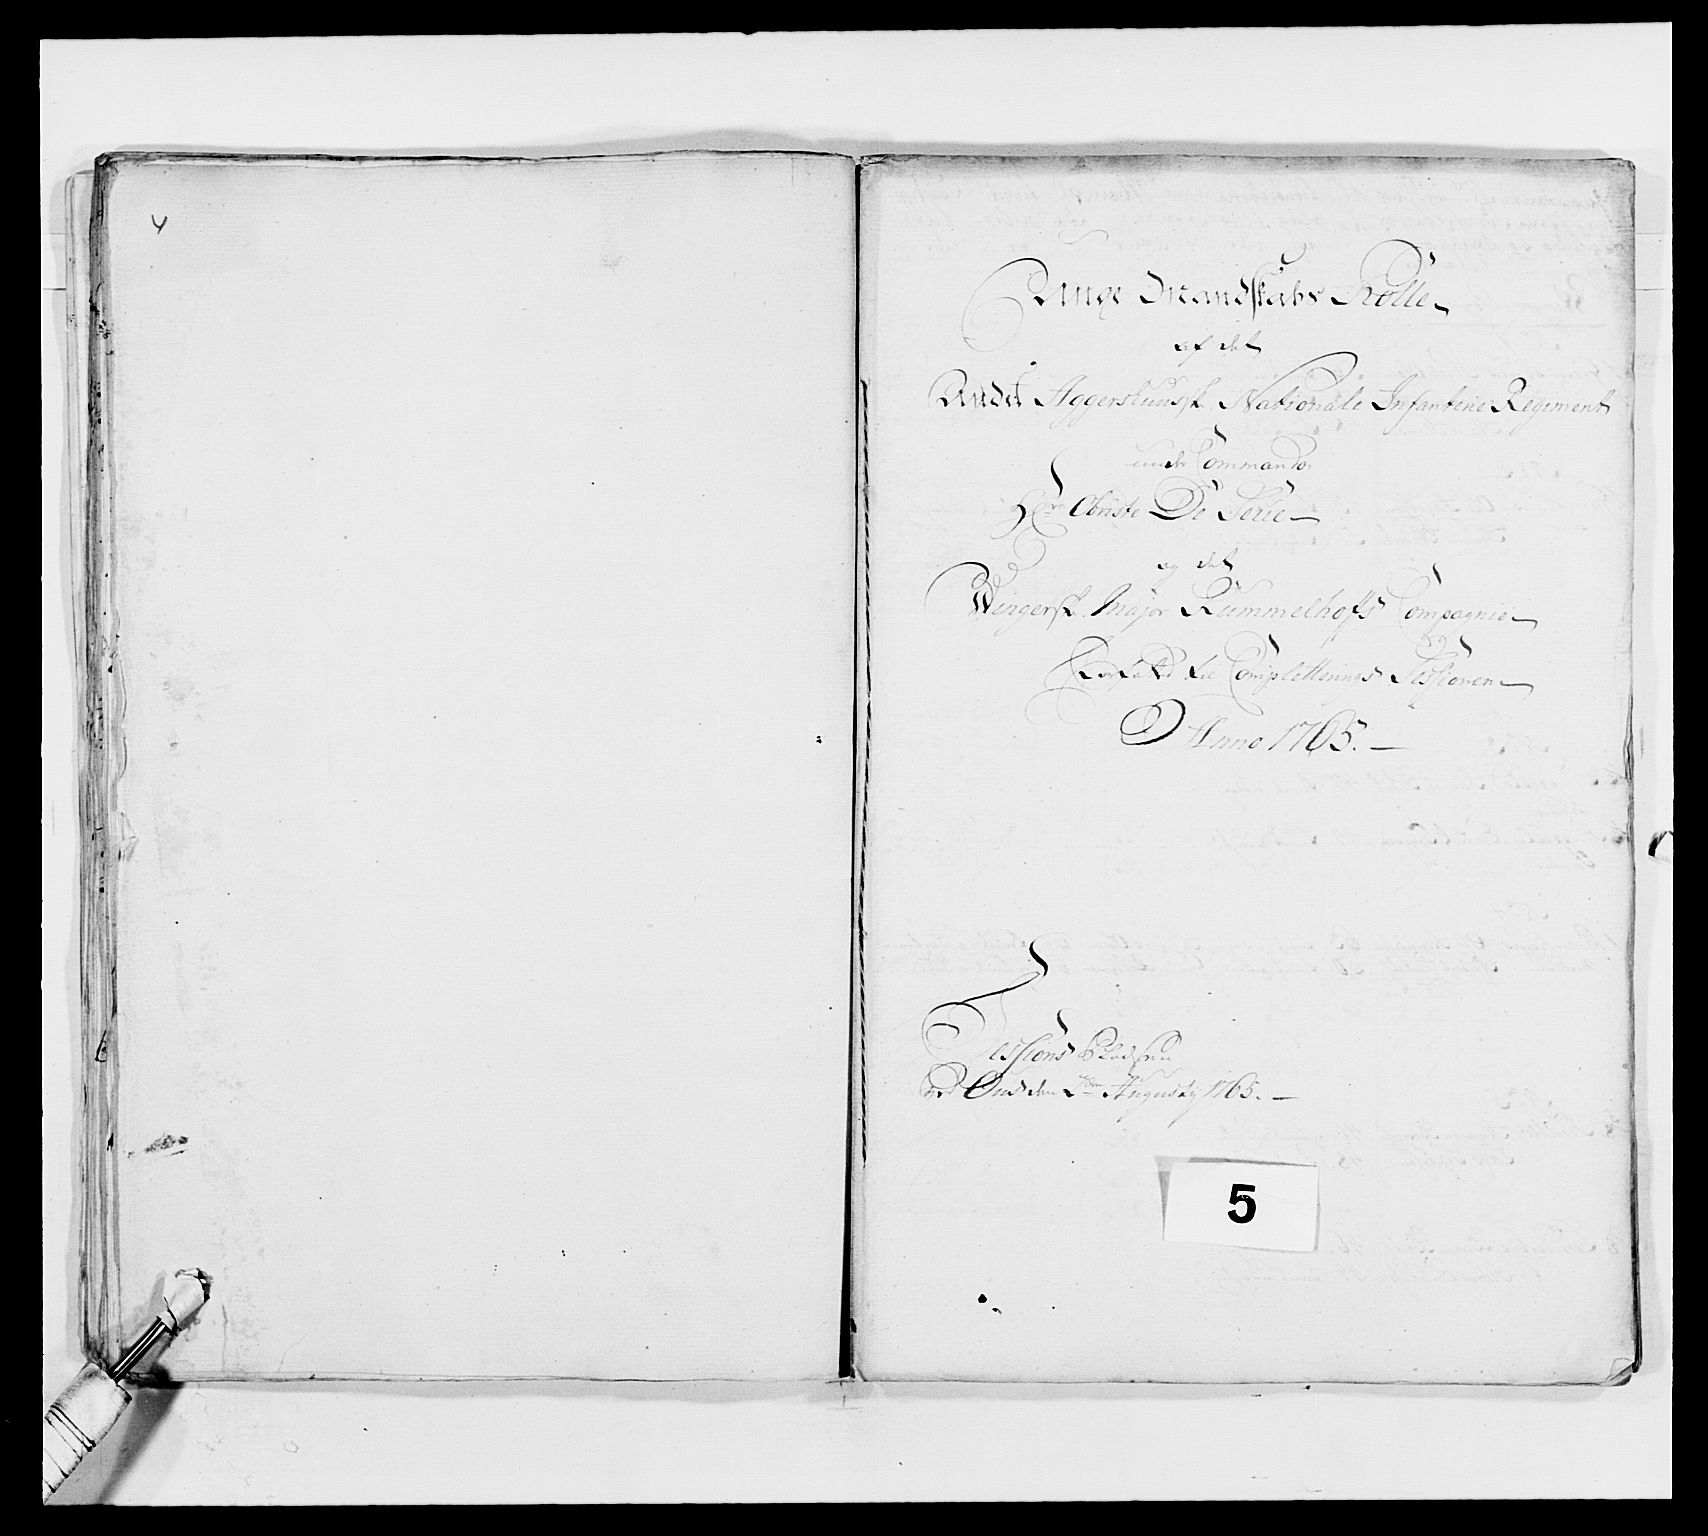 Unge Mandskabs Rolle
af det
Andet Aggershuusk. Nationale Infanterie Regiment
under Commando
Hr Obriste De Seüe
og det
Wingersk. Major Rummelhoffs Compagnie
Forfatted til Completterings Sessionen
Anno 1765.
Sessions Pladsen
ved Ous den Augusty 1765.
5